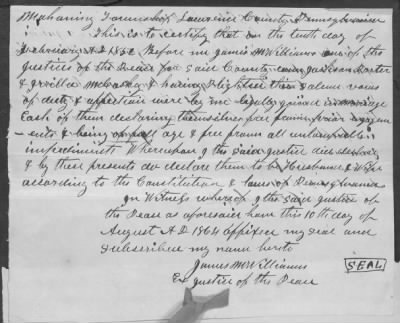 Mahoning Township Lawrence County Pennsylvania
This is to certify that on the tenth day of
February A D 1852 Before me James McWilliams one of the
Justice of the Peace for said County came Jackson Porter
& & having plighted their solemn vows
of duty & affection were by me legally joined in marriage
Each of them declaring themselves free from prior engagem
-ents & being of full age & free from all unlawful
impediments Whereupon I the said Justice did declare
& by these presents do declare them to be Husband & Wife
according to the Constitution & laws of Pennsylvania
In Witness whereof I the said Justice of
the Pease as aforesaid have this 10th day of
August A D 1864 affixed my seal and
subscribed my name hereto
James McWilliams
Ex Justice of the Pease
SEAL